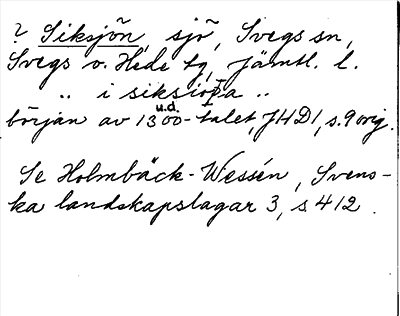 ? Siksjön, sjö, Svegs sn,
Svegs o. Hede tg, Jämtl. l.
.. i siksiopa ..
u.d.
början av 1300-talet, JHD 1, s. 9 orig.
Se Holmbäck-Wessén, Svens-
ka landskapslagar 3, s 412.